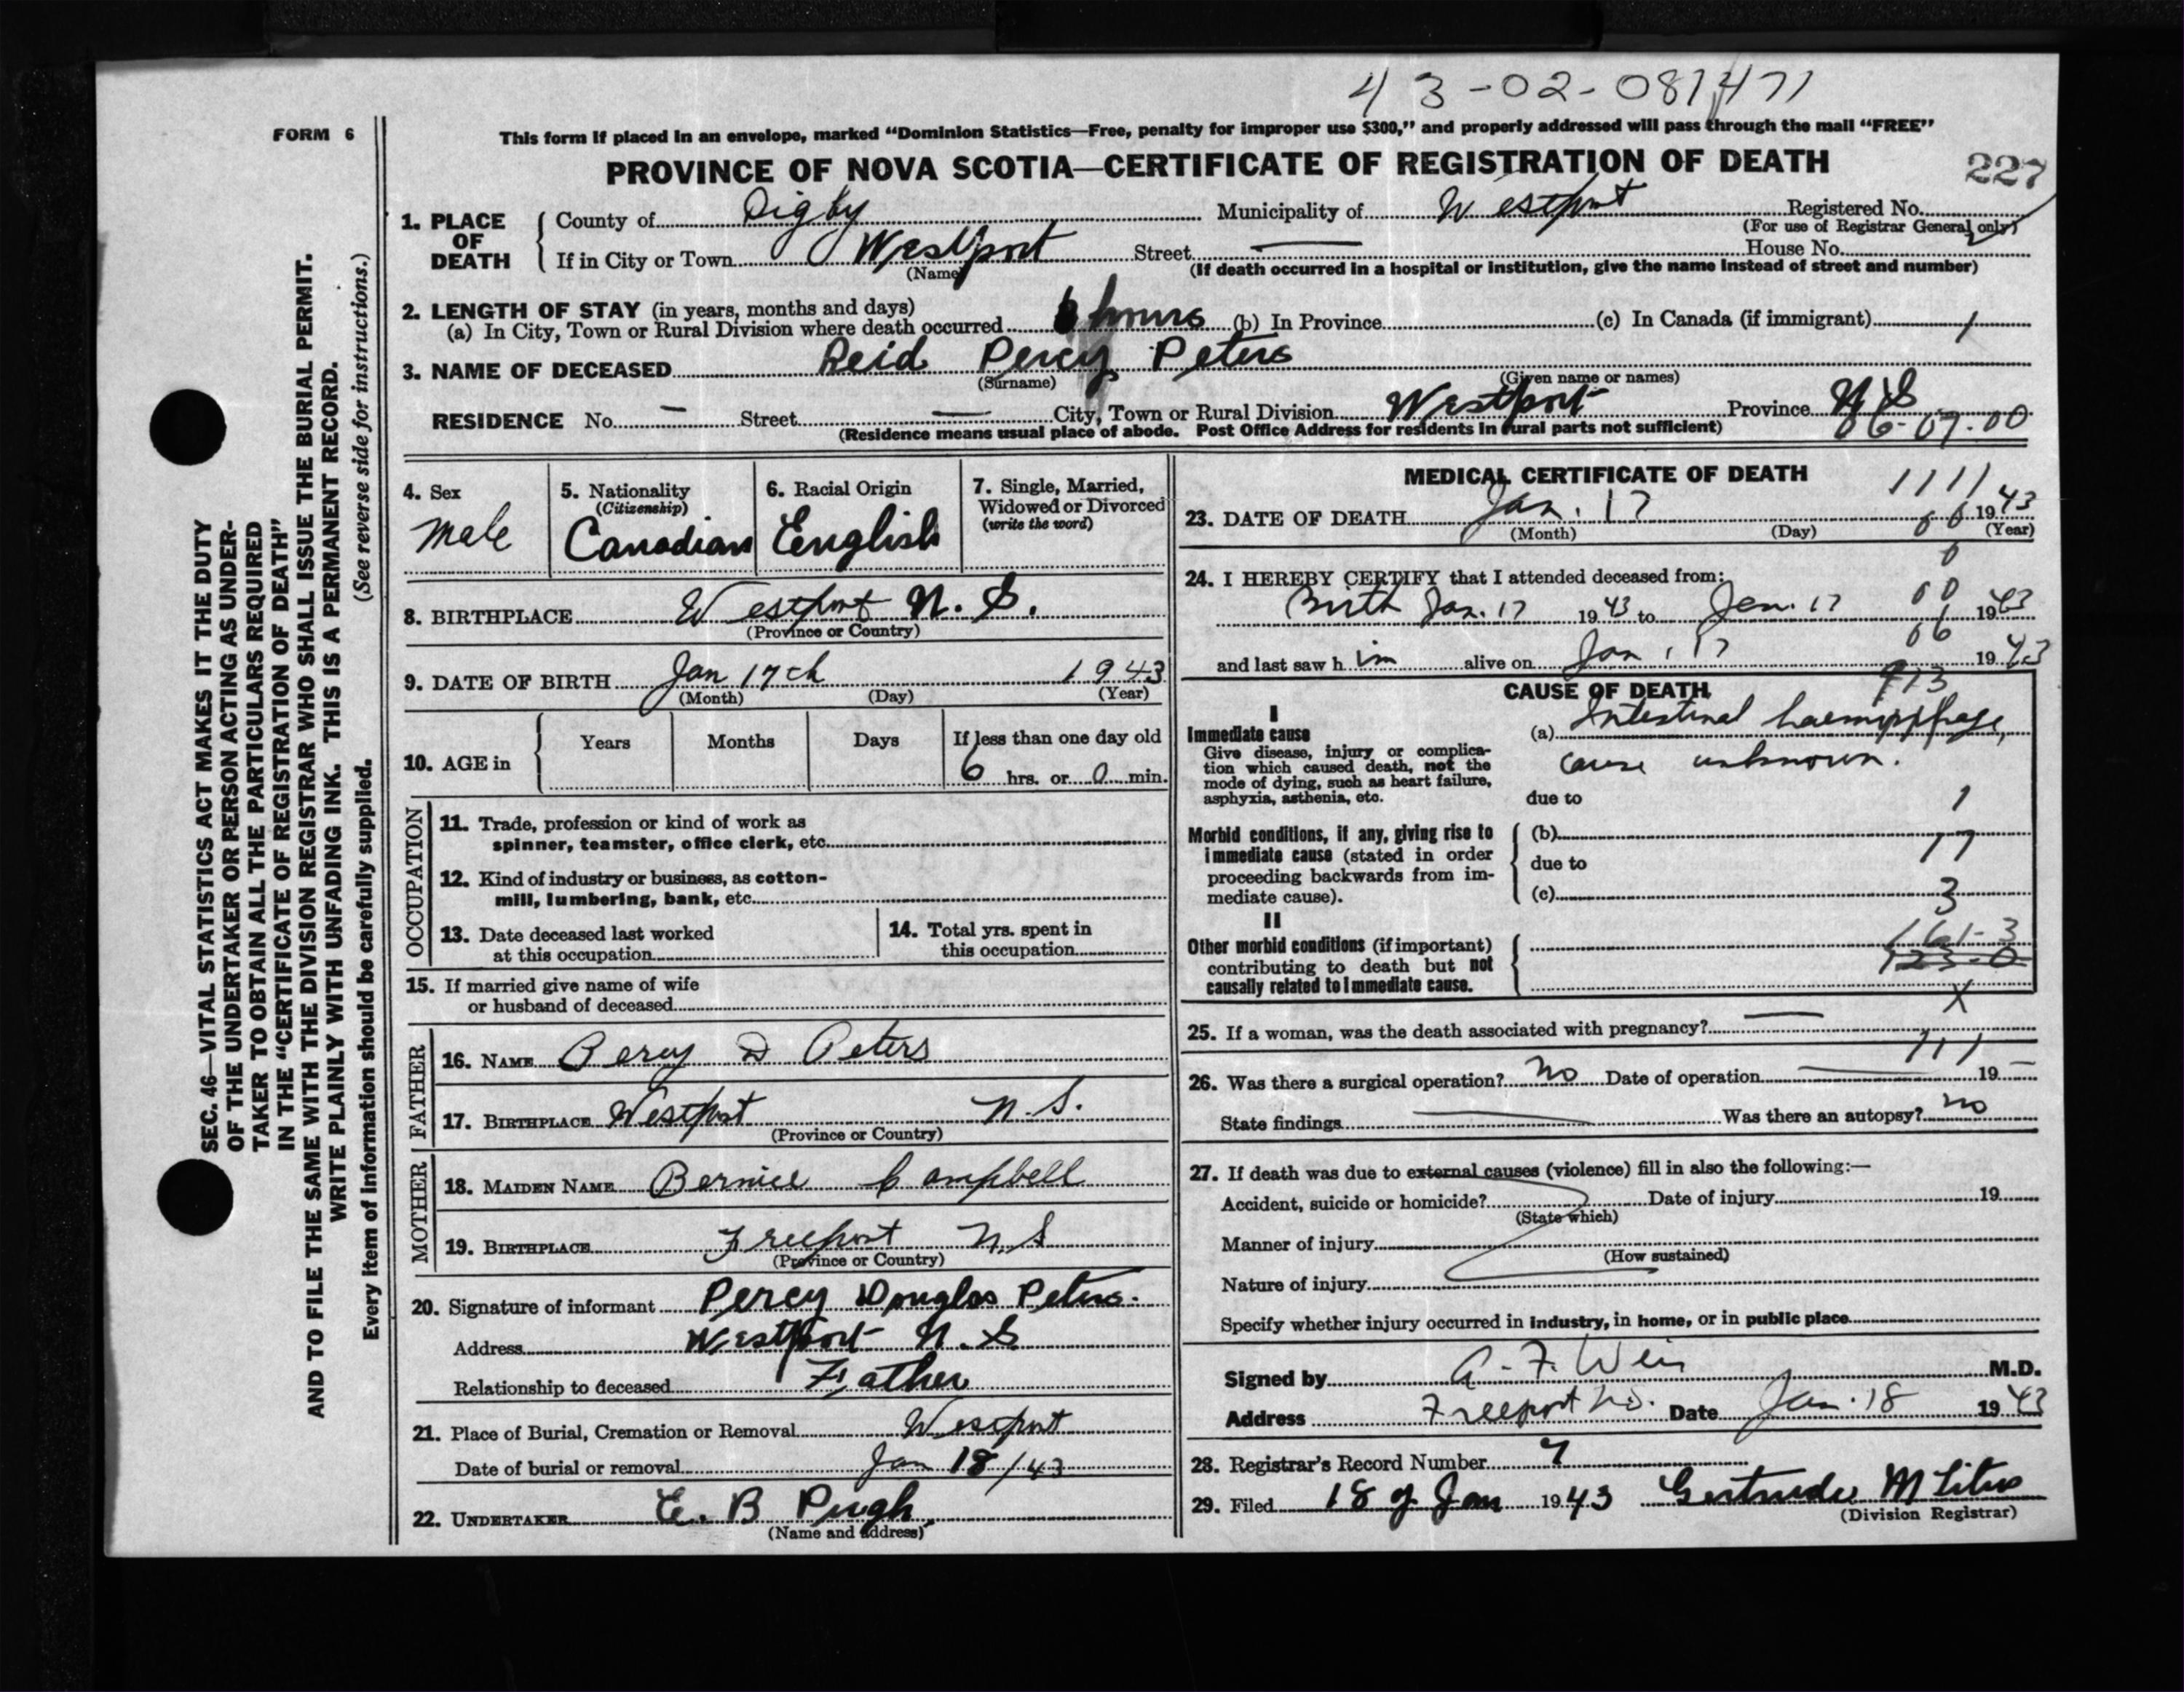 43-02-081471
FORM 6
This form if placed in an envelope, marked "Dominion Statistics—Free, penalty for improper use $300," and properly addressed will pass through the mail "FREE"
PROVINCE OF NOVA SCOTIA—CERTIFICATE OF REGISTRATION OF DEATH
227
1. PLACE OF DEATH
County of Digby Municipality of Westport Registered No.
(For use of Registrar General only)
If in City or Town Westport Street — House No.
(Name) (If death occurred in a hospital or institution, give the name instead of street and number)
2. LENGTH OF STAY (in years, months and days)
(a) In City, Town or Rural Division where death occurred 6 hours (b) In Province (c) In Canada (if immigrant) 1
3. NAME OF DECEASED Reid Percy Peters
(Surname) (Given name or names)
RESIDENCE No. — Street — City, Town or Rural Division Westport Province N S
(Residence means usual place of abode. Post Office Address for residents in rural parts not sufficient) 06-07-00
4. Sex Male
5. Nationality (Citizenship) Canadian
6. Racial Origin English
7. Single, Married, Widowed or Divorced (write the word)
8. BIRTHPLACE Westport N. S.
(Province or Country)
9. DATE OF BIRTH Jan 17th 1943
(Month) (Day) (Year)
10. AGE in Years Months Days If less than one day old
6 hrs. or 0 min.
OCCUPATION
11. Trade, profession or kind of work as spinner, teamster, office clerk, etc.
12. Kind of industry or business, as cotton-mill, lumbering, bank, etc.
13. Date deceased last worked at this occupation
14. Total yrs. spent in this occupation
15. If married give name of wife or husband of deceased
FATHER
16. NAME Percy D Peters
17. BIRTHPLACE Westport N. S.
(Province or Country)
MOTHER
18. MAIDEN NAME Bernice Campbell
19. BIRTHPLACE Freeport N S
(Province or Country)
20. Signature of informant Percy Douglas Peters.
Address Westport N. S.
Relationship to deceased Father
21. Place of Burial, Cremation or Removal Westport
Date of burial or removal Jan 18/43
22. UNDERTAKER E. B Pugh
(Name and address)
MEDICAL CERTIFICATE OF DEATH
1111
23. DATE OF DEATH Jan. 17 1943
(Month) (Day) (Year)
24. I HEREBY CERTIFY that I attended deceased from:
Birth Jan. 17 1943 to Jan. 17 1943
and last saw h im alive on Jan. 17 1943
CAUSE OF DEATH
I
Immediate cause
Give disease, injury or complication which caused death, not the mode of dying, such as heart failure, asphyxia, asthenia, etc.
(a) Intestinal haemorrhage,
cause unknown.
due to
1
Morbid conditions, if any, giving rise to immediate cause (stated in order proceeding backwards from immediate cause).
(b)
17
due to
(c)
3
II
Other morbid conditions (if important) contributing to death but not causally related to immediate cause.
161-3
X
25. If a woman, was the death associated with pregnancy? —
26. Was there a surgical operation? No Date of operation — 19 —
State findings — Was there an autopsy? no
27. If death was due to external causes (violence) fill in also the following:—
Accident, suicide or homicide? Date of injury 19
(State which)
Manner of injury
(How sustained)
Nature of injury
Specify whether injury occurred in industry, in home, or in public place
Signed by A. F. Weir M.D.
Address Freeport N.S. Date Jan. 18 1943
28. Registrar's Record Number 7
29. Filed 18 of Jan 1943 Gertrude M Titus
(Division Registrar)
SEC. 46—VITAL STATISTICS ACT MAKES IT THE DUTY
OF THE UNDERTAKER OR PERSON ACTING AS UNDER-
TAKER TO OBTAIN ALL THE PARTICULARS REQUIRED
IN THE "CERTIFICATE OF REGISTRATION OF DEATH"
AND TO FILE THE SAME WITH THE DIVISION REGISTRAR WHO SHALL ISSUE THE BURIAL PERMIT.
WRITE PLAINLY WITH UNFADING INK. THIS IS A PERMANENT RECORD.
(See reverse side for instructions.)
Every item of information should be carefully supplied.